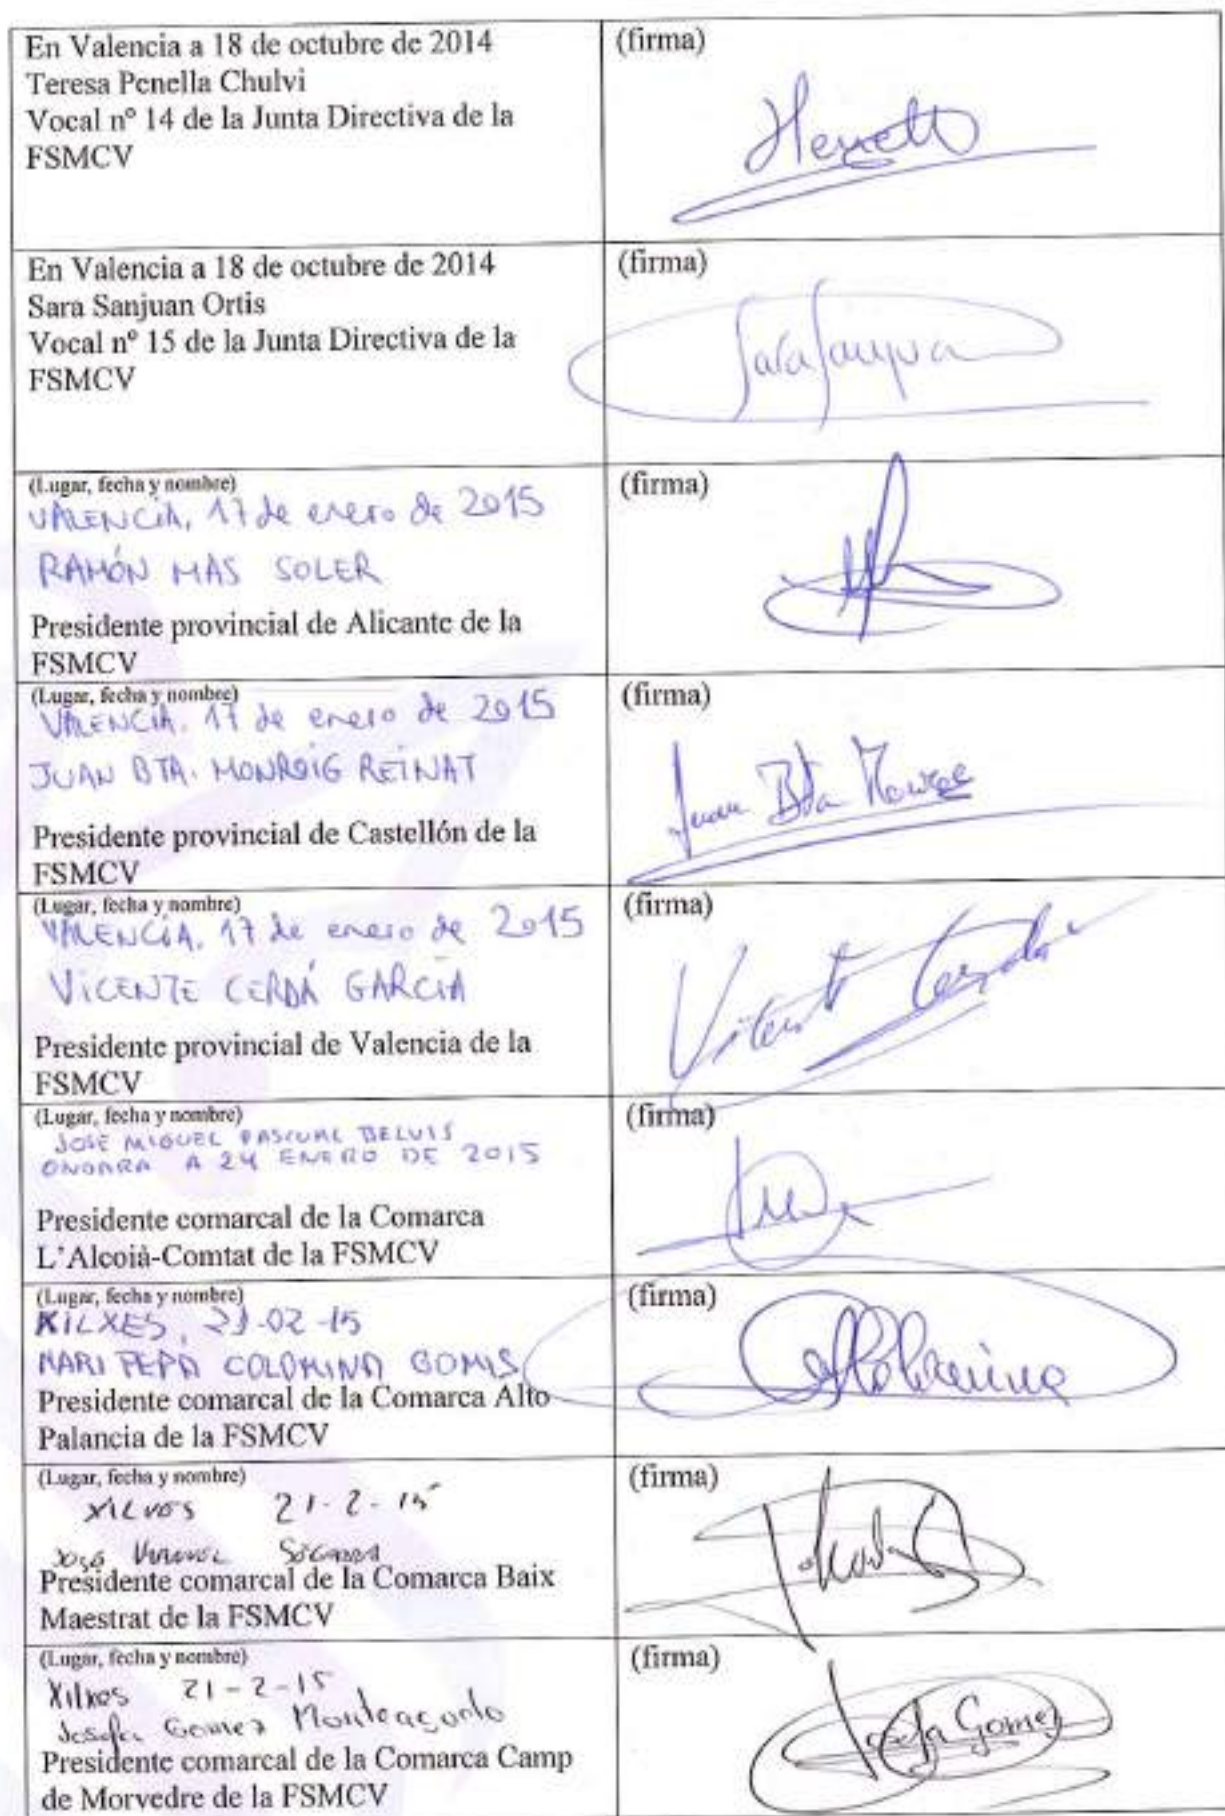 En Valencia a 18 de octubre de 2014
Teresa Penella Chulvi
Vocal nº 14 de la Junta Directiva de la
FSMCV
(firma)
En Valencia a 18 de octubre de 2014
Sara Sanjuan Ortis
Vocal nº 15 de la Junta Directiva de la
FSMCV
(firma)
(Lugar, fecha y nombre)
VALENCIA, 17 de enero de 2015
RAMÓN MAS SOLER
Presidente provincial de Alicante de la
FSMCV
(firma)
(Lugar, fecha y nombre)
VALENCIA, 17 de enero de 2015
JUAN BTA. MONROIG REINAT
Presidente provincial de Castellón de la
FSMCV
(firma)
Juan Bta
(Lugar, fecha y nombre)
VALENCIA, 17 de enero de 2015
VICENTE CERDÁ GARCÍA
Presidente provincial de Valencia de la
FSMCV
(firma)
(Lugar, fecha y nombre)
JOSE MIGUEL PASCUAL BELVIS
ONDARA A 24 ENERO DE 2015
Presidente comarcal de la Comarca
L'Alcoià-Comtat de la FSMCV
(firma)
(Lugar, fecha y nombre)
XILXES, 21-02-15
MARI PEPA COLOMINA GOMIS
Presidente comarcal de la Comarca Alto
Palancia de la FSMCV
(firma)
(Lugar, fecha y nombre)
21-2-15
José
Presidente comarcal de la Comarca Baix
Maestrat de la FSMCV
(firma)
(Lugar, fecha y nombre)
Xilxes 21-2-15
Josefa Gomez Monteagudo
Presidente comarcal de la Comarca Camp
de Morvedre de la FSMCV
(firma)
Josefa Gomez